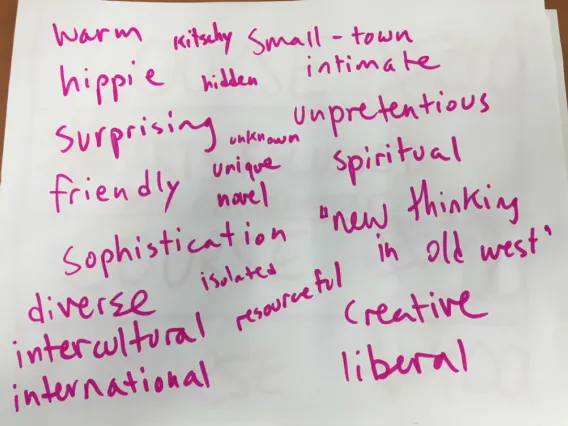 warm kitschy small-town
hippie hidden intimate
surprising unknown unpretentious
friendly unique spiritual
novel
sophistication "new thinking
in old west"
diverse isolated
intercultural resourceful creative
international liberal